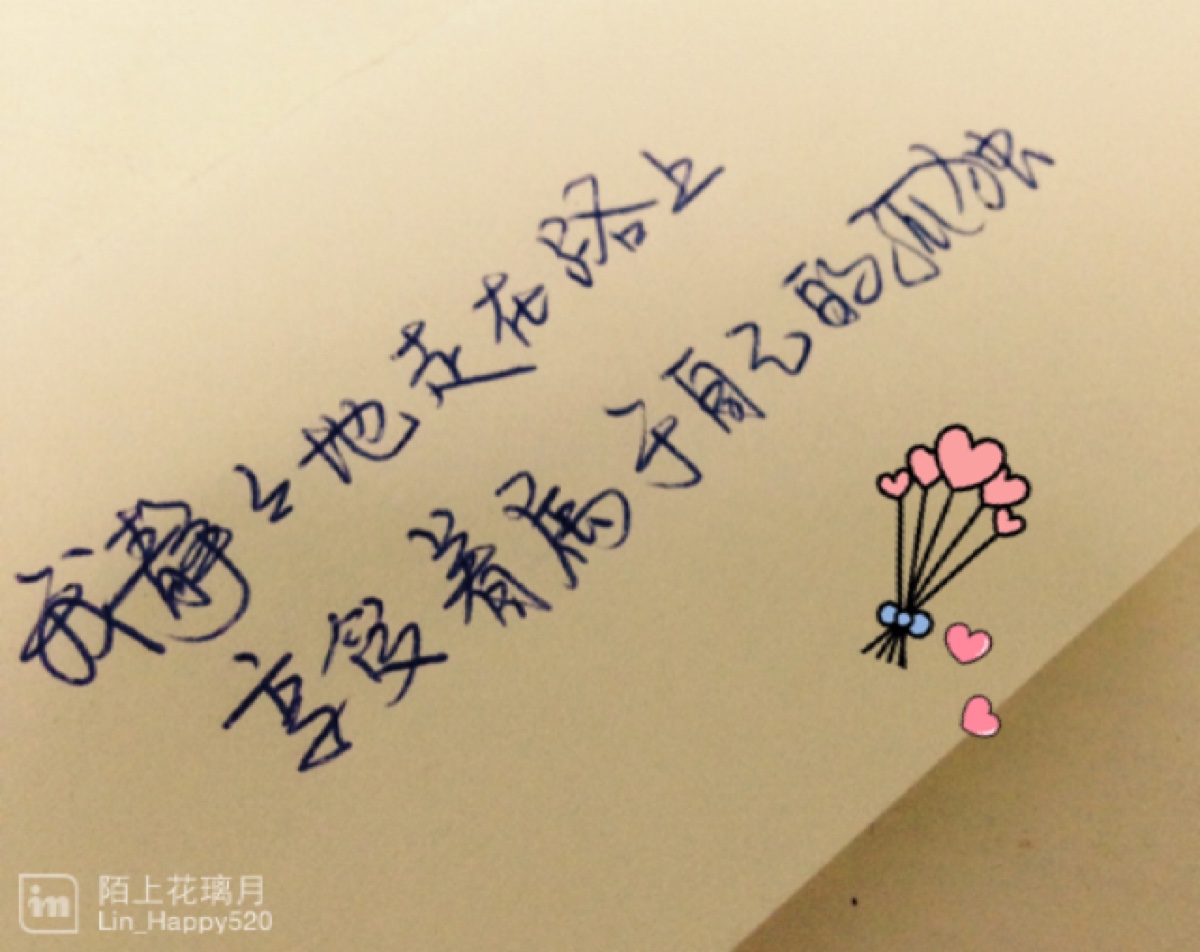 我静々地走在路上
享受着属于自己的孤独
im
陌上花璃月
Lin_Happy520